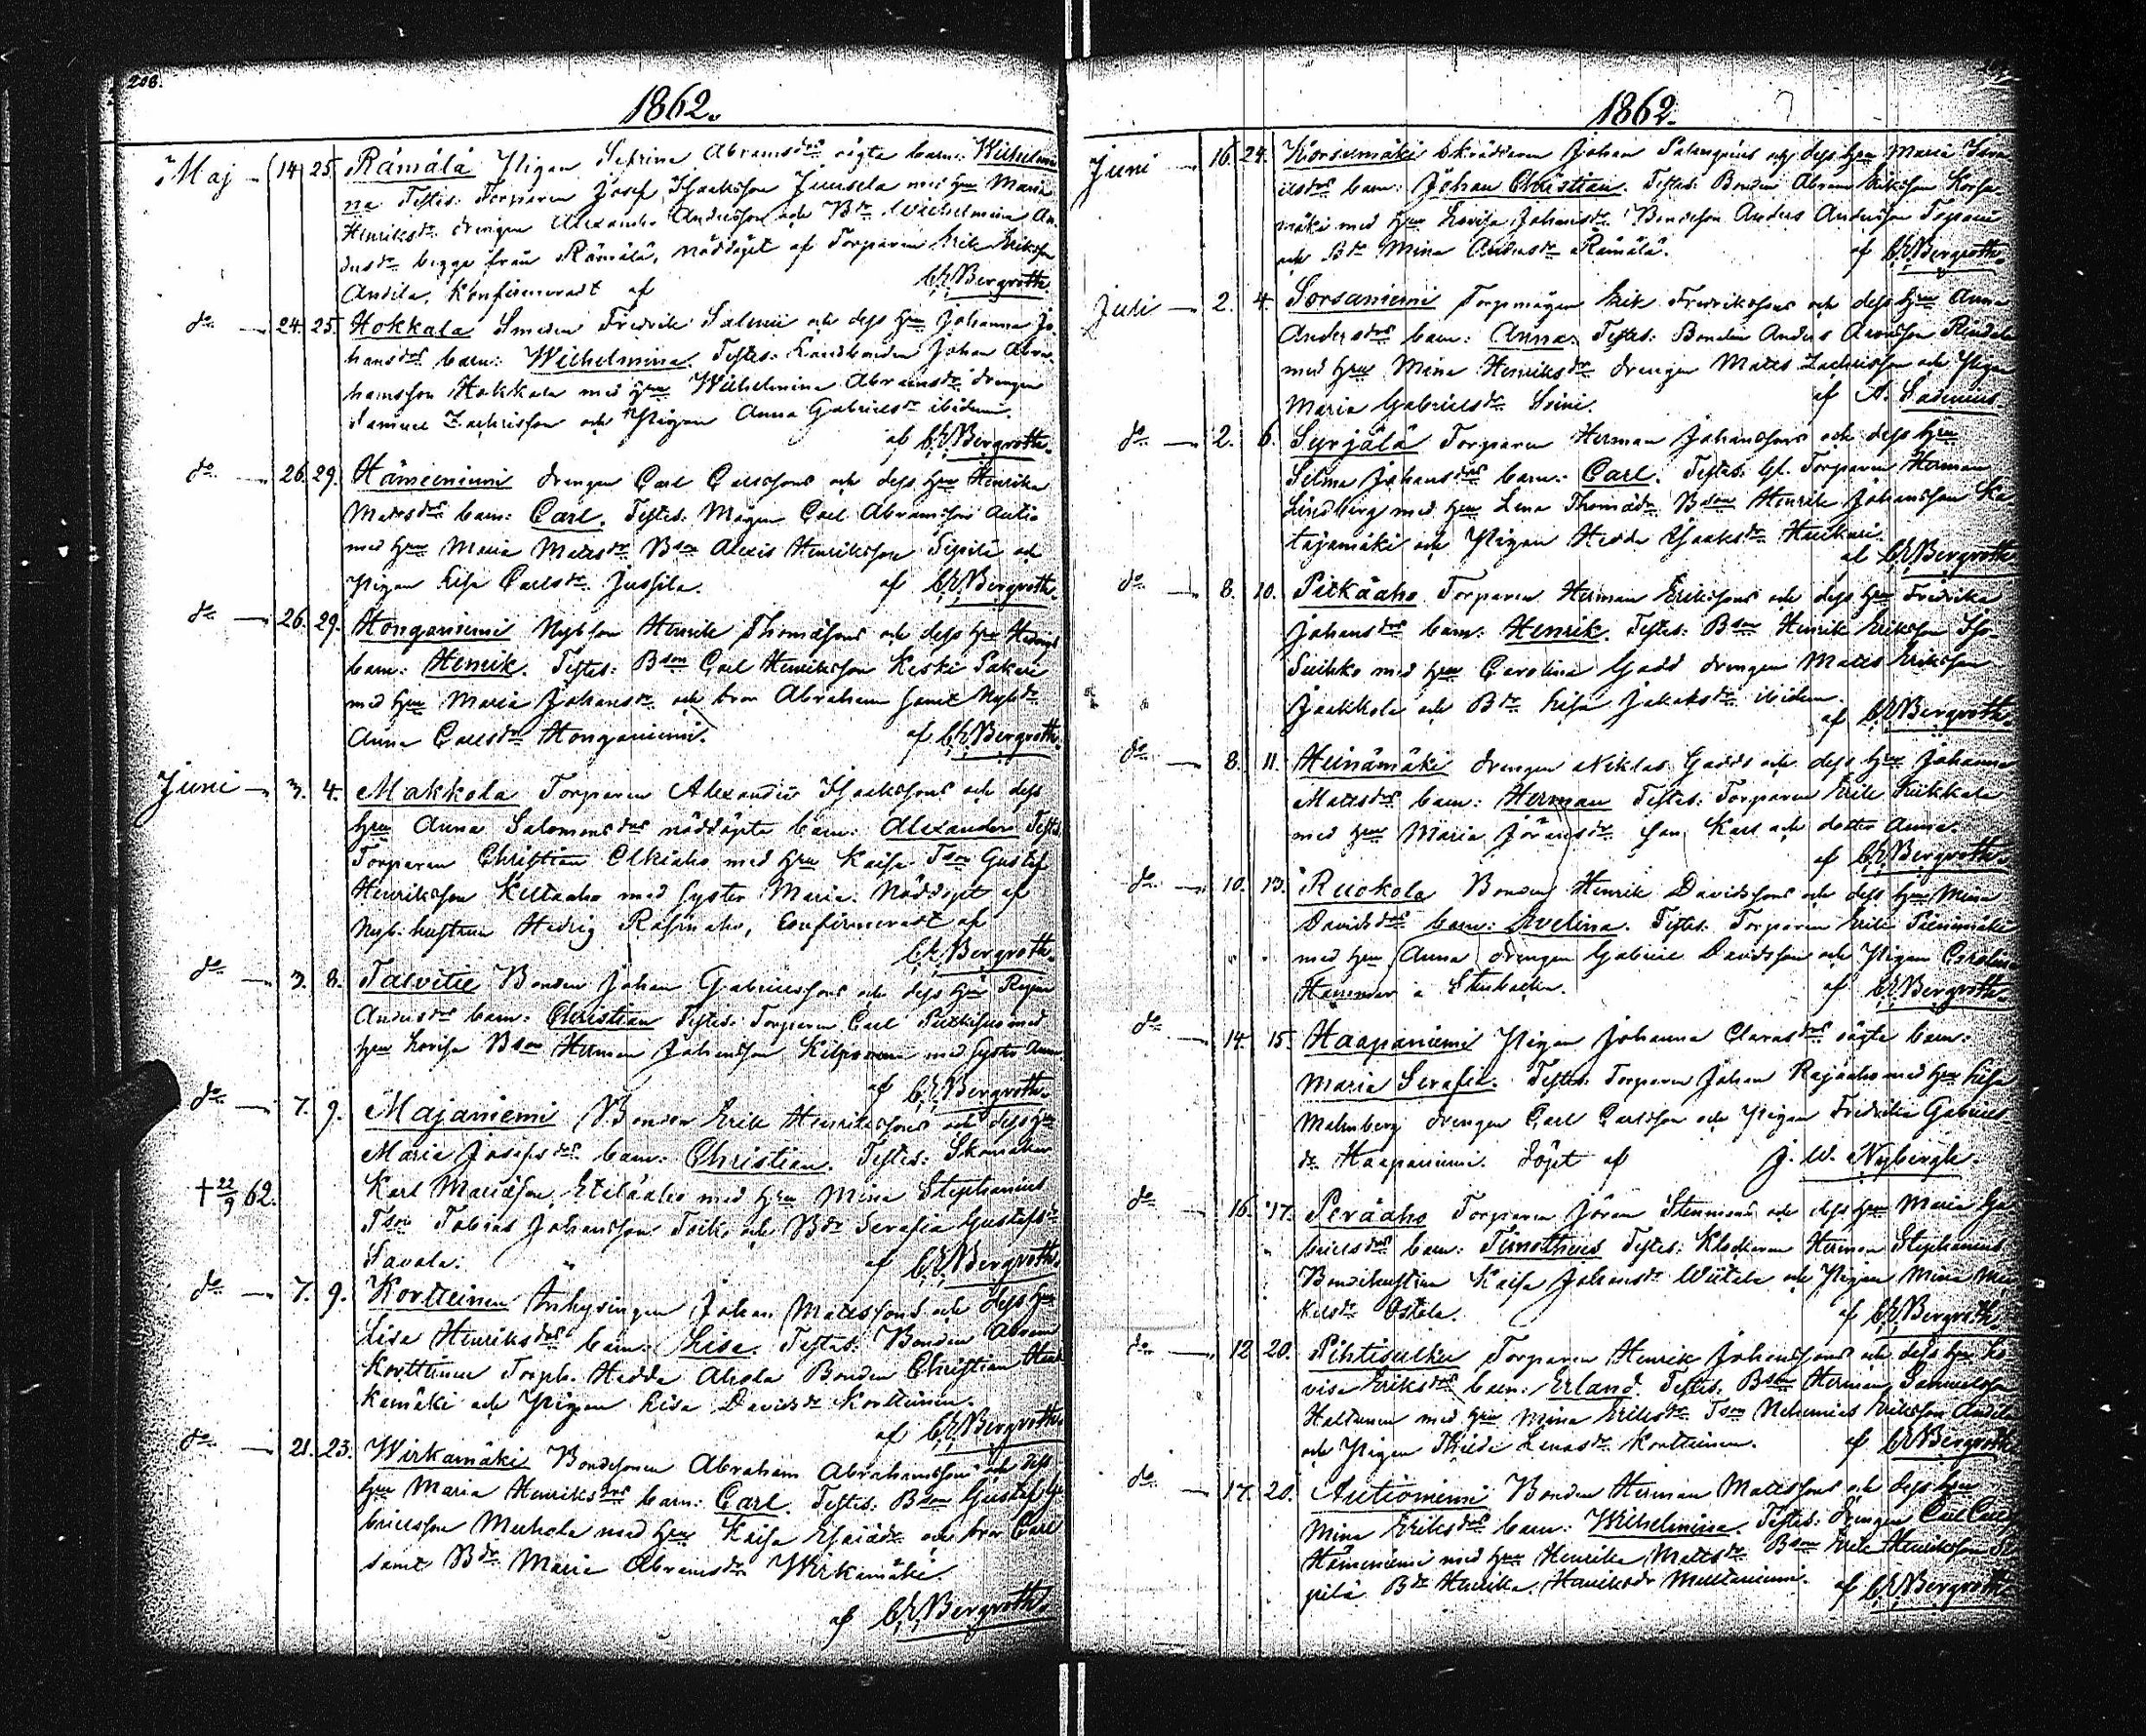 208.
1862.
Maj 14 25. Rämälä Pigan Sefrina Abramsdrs oägta barn: Wilhelmi
na Testes: Torparen Josef Isaaksson Juusela med hru Maria
Henriksdr drengen Alexander Andersson och Bdr Wilhelmina An-
dersdr begge från Rämälä, nöddöpt af Torparen Erik Eriksson
Andila, Konfirmeradt af C.E. Bergroth.
do 24. 25. Hokkala Smeden Fredrik Salmii och dess hru Johanna Jo-
hansdrs barn: Wilhelmina. Testes: Landbonden Johan Abra-
hamsson Hokkala med hru Wilhelmina Abramsdr drengen
Samuel Zachrisson och Pigan Anna Gabrielsdr ibidem.
af C.E. Bergroth.
do 26. 29. Hämeeniemi drengen Carl Carlssons och dess hru Henrika
Matsdrs barn: Carl. Testes: Mågen Carl Abramsson Autio
med hru Maria Matsdr Bson Alexis Henriksson Sipilä och
Pigan Lisa Carlsdr Jussila. af C.E. Bergroth.
do 26. 29. Honganiemi Nybson Henrik Thomassons och dess hru Hedvigs
barn: Henrik. Testes: Bson Carl Henriksson Keski Pakari
med hru Maria Johansdr och bror Abraham samt Nybdr
Anna Carlsdr Honganiemi. af C.E. Bergroth.
Juni 3. 4. Makkola Torparen Alexander Isaakssons och dess
hru Anna Salomonsdrs nöddöpte barn: Alexander Testes
Torparen Christian Olkiaho med hru Kaisa Tson Gustaf
Henriksson Kiltaaho med syster Maria. Nöddöpt af
Nyb. hustrun Hedvig Rasinaho, Confirmeradt af
C.E. Bergroth.
do 3. 8. Talvitie Bonden Johan Gabrielssons och dess hru Regina
Andersdrs barn: Christian Testes: Torparen Carl med
hru Lovisa Bson Herman Johansson med syster Anna
af C.E. Bergroth.
do 7. 9. Majaniemi Bonden Erik Henrikssons och dess hru
Maria Josefsdrs barn: Christian. Testes: Skomakaren
+ 22/9 62. Karl Mattsson Eteläaho med hru Mina Stephanius
Tson Tobias Johansson och Bdr Serafia Gustafsdr
Savola. af C.E. Bergroth.
do 7. 9. Kortteinen Inhysingen Johan Matssons och dess hru
Lisa Henriksdrs barn: Lisa. Testes: Bonden Abram
Korttinen Torph. Hedda Ahola Bonden Christian
kamäki och Pigan Lisa Davidsdr Kortteinen.
af C.E. Bergroth
do 21. 23. Wirkamäki Bondesonen Abraham Abrahamssons och dess
hru Maria Henriksdrs barn: Carl. Testes: Bson Gustaf Ga
brielsson Meehola med hru Kaisa Esaiädr och bror Carl
samt Bdr Maria Abramsdr Wirkamäki.
af C.E. Bergroth.
1862.
Juni 16. 24. Korsumäki Skräddaren Johan Palengius och dess hru Maria Isra
elsdrs barn: Johan Christian. Testes: Bonden Abram Eriksson Korsu-
mäki med hru Lovisa Johansdr Bondeson Anders Andersson
och Bdr Mina Andersdr Rämälä. af C.E. Bergroth.
Juli 2. 4. Sorsaniemi Torpmågen Erik Fredrikssons och dess hru Anna
Andersdrs barn: Anna. Testes: Bonden Anders Aronsson
med hru Mina Henriksdr drengen Matts Zachrisson och Pigan
Maria Gabrielsdr Ssini. af A. Sadenius.
do 2. 6. Syrjälä Torparen Herman Johanssons och dess hru
Selma Johansdrs barn: Carl. Testes: Gl. Torparen Herman
Lindberg med hru Lena Thomädr Bson Henrik Johansson Ka
tajamäki och Pigan Hedda Isaaksdr Haukari.
af C.E. Bergroth.
do 8. 10. Pitkäaho Torparen Herman Erikssons och dess hru Fredrika
Johansdrs barn: Henrik. Testes: Bson Henrik Eriksson Iso-
Seikko med hru Carolina Gadd drengen Matts Eriksson
Jaakkola och Bdr Lisa Jakobsdr ibidem.
af C.E. Bergroth.
do 8. 11. Heinämäki drengen Niklas Gadds och dess hru Johanna
Matsdrs barn: Herman Testes: Torparen Erik Liikkala
med hru Maria Jöransdr son Karl och dotter Anna.
af C.E. Bergroth.
do 10. 13. Ruokola Bonden Henrik Davidssons och dess hru Mina
Davidsdrs barn: Evelina. Testes: Torparen Erik Pienimäki
med hru Anna drengen Gabriel Davidsson och Pigan Carolina
af C.E. Bergroth.
do 14. 15. Haapaniemi Pigan Johanna Clarasdrs oägta barn:
Maria Serafia. Testes: Torparen Johan Rajaaho med hru Lisa
Malmberg drengen Carl Carlsson och Pigan Fredrika Gabriels
dr Haapaniemi. Döpt af J. W. Nybergh.
do 16. 17. Peräaho Torparen Jöran Stenmans och dess hru Maria Ga
brielsdrs barn: Timotheus Testes: Klockaren Herman Stephanius
Bondehustrun Kaisa Johansdr Wiitala och Pigan Mina Mi
kelsdr Ostela. af C.E. Bergroth.
do 12 20. Pihtisulku Torparen Henrik Johanssons och dess hru Lo
visa Eriksdrs barn: Erland. Testes: Bson Herman Samuelsson
Haltunen med hru Mina Eriksdr Tson Nehemias Eriksson Andila
och Pigan Lenasdr Kortteinen. af C.E. Bergroth
do 17. 20. Autioniemi Bonden Herman Matssons och dess hru
Mina Eriksdrs barn: Wilhelmina. Testes: Drengen Carl Carlss
Hämeniemi med hru Henrika Matsdr Bson Erik Henriksson Si
pilä Bdr Henrika Henriksdr Multaniemi. af C.E. Bergroth.